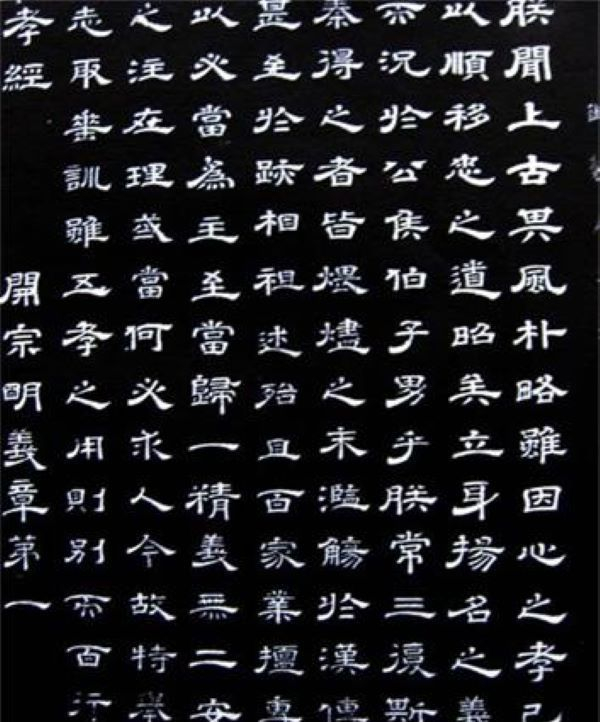 朕聞上古其風朴略雖因心之孝已
以順移忠之道昭矣立身揚名之義
而況於公侯伯子男乎朕常三復斯
秦得之者皆煨燼之末濫觴於漢傳
是至於跡相祖述殆且百家業擅專
以必當為主至當歸一精義無二安
之注在理或當何必求人今故特舉
志取垂訓雖五孝之用則別而百行
孝經 開宗明義章第一